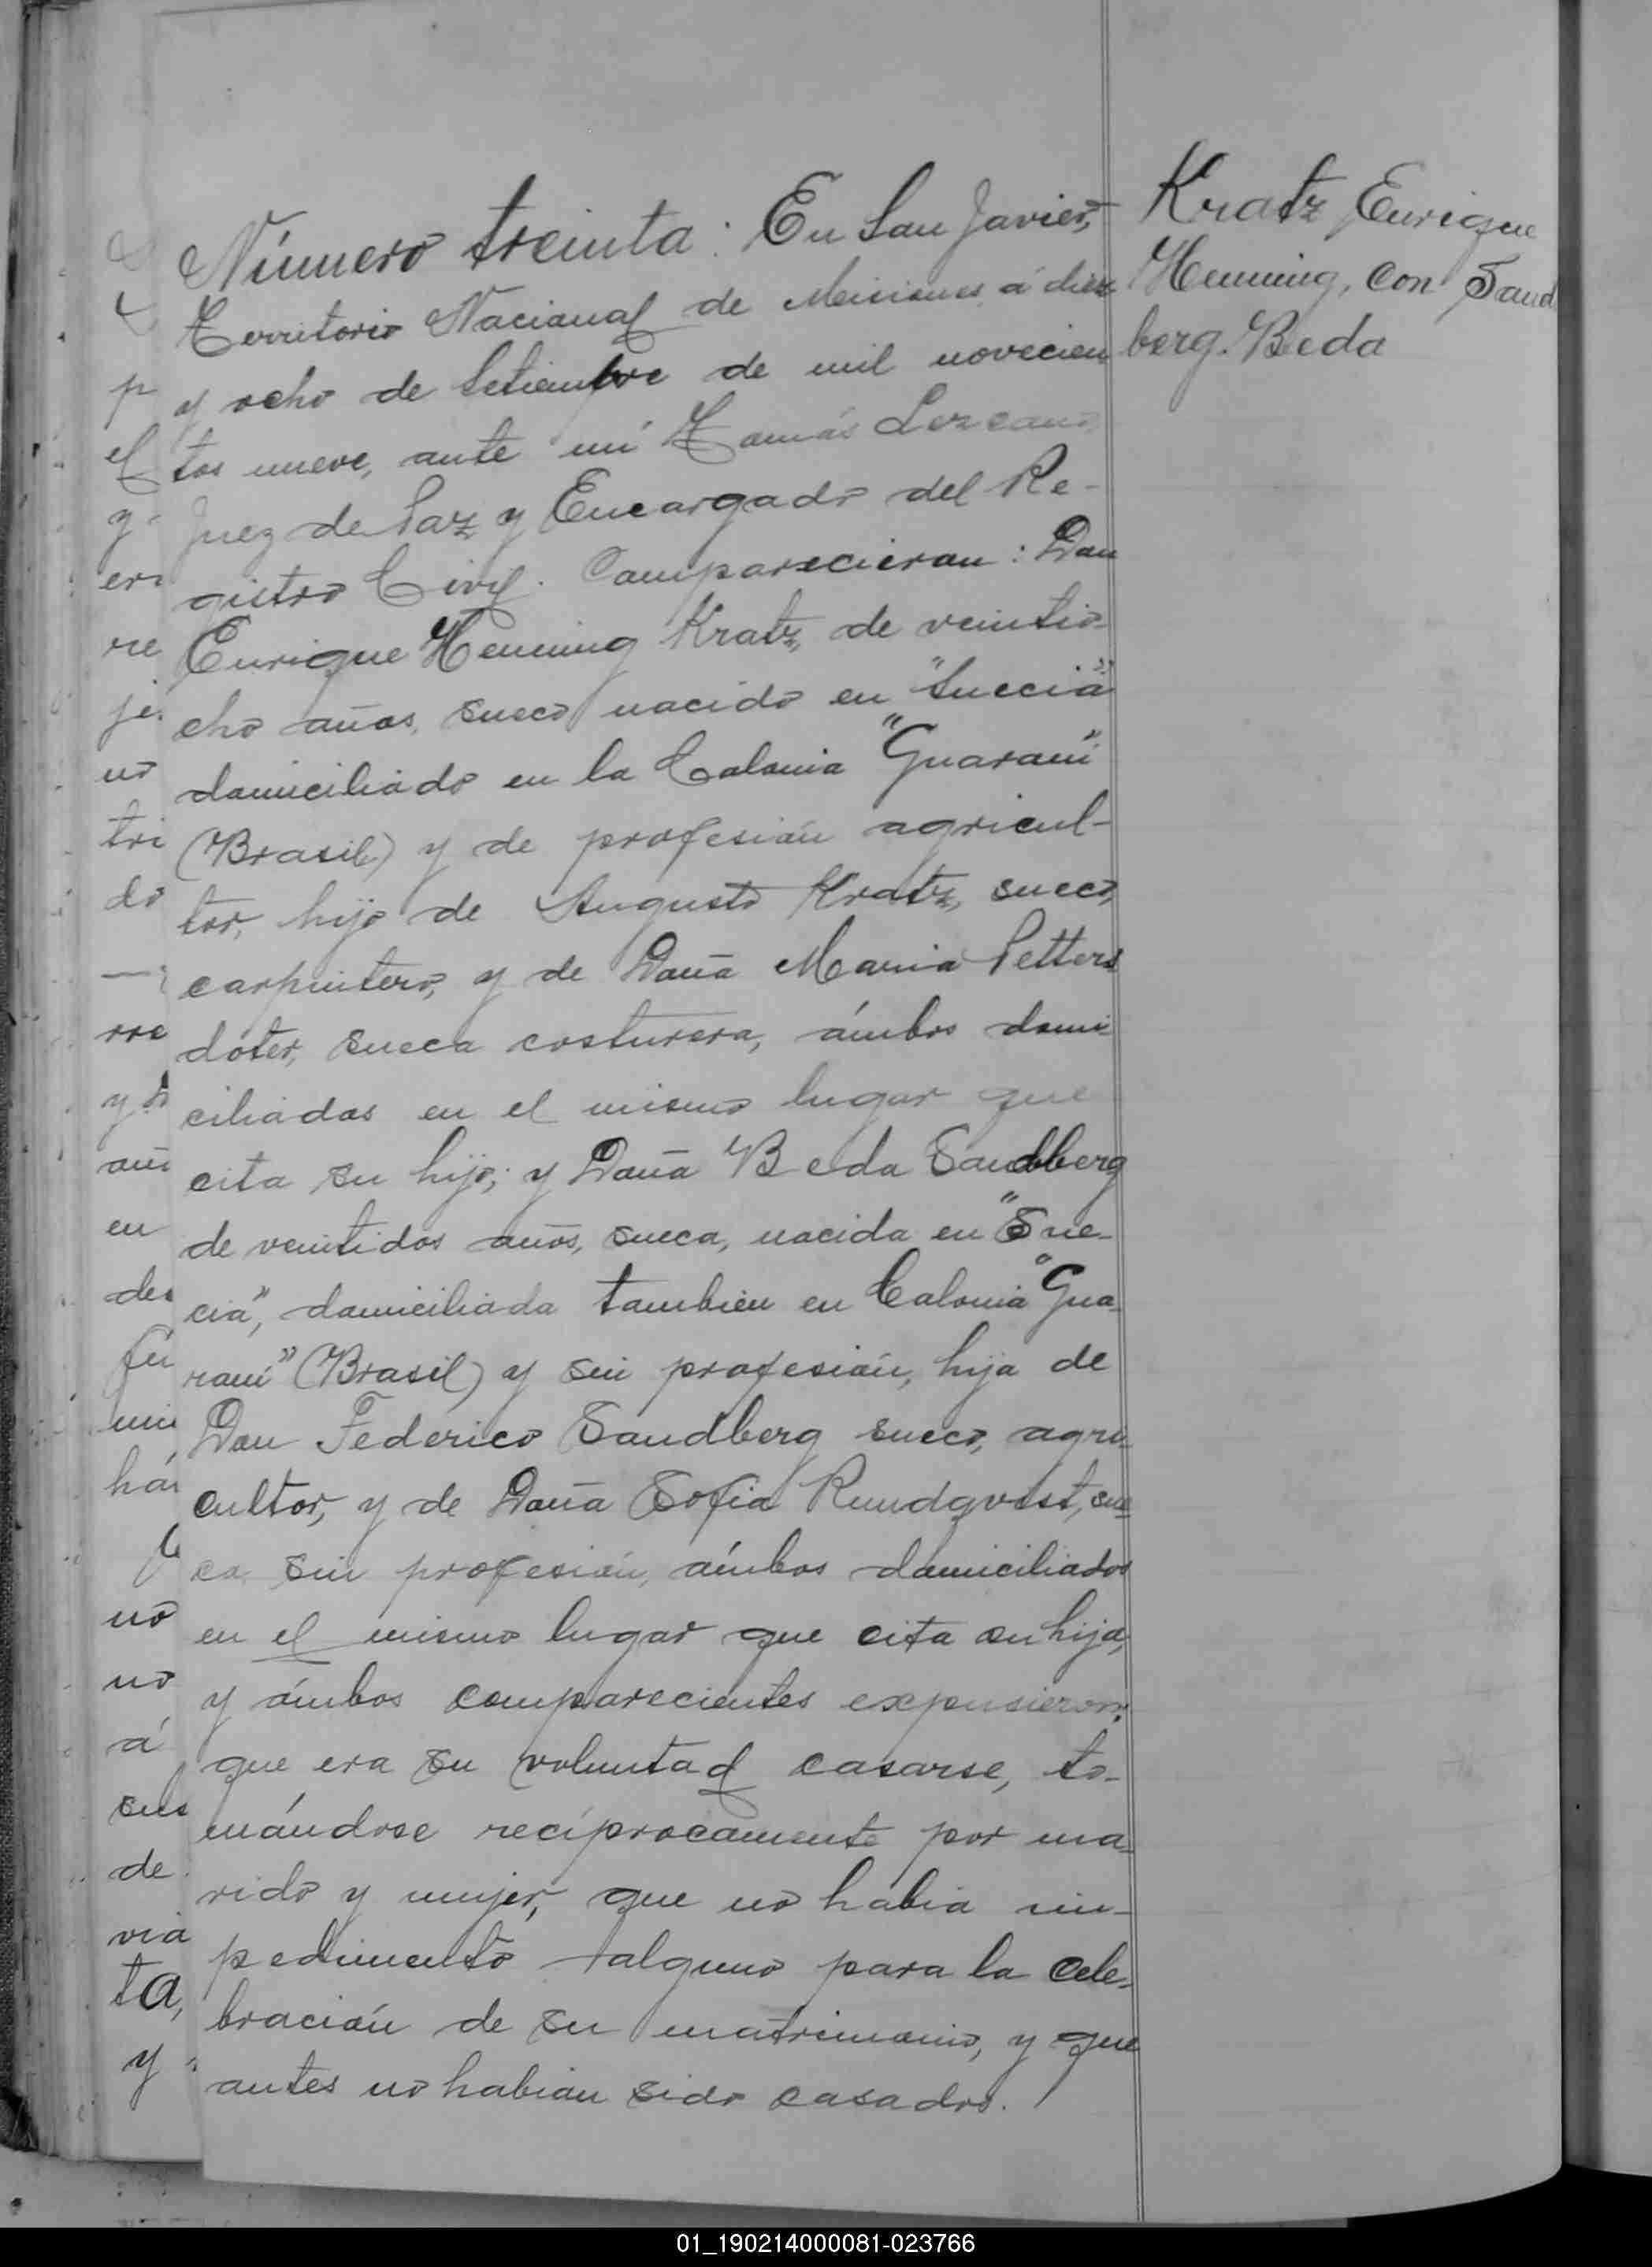 Número treinta: En San Javier,
Territorio Nacional de Misiones á diez
y ocho de Setiembre de mil novecien
tos nueve, ante mí Tomás Lezcano,
Juez de Paz y Encargado del Re-
gistro Civil. Comparecieron: Don
Enrique Henning Kratz, de veintio-
cho años, sueco nacido en "Succia"
domiciliado en la Colonia "Guaraní"
(Brasil) y de profesión agricul-
tor, hijo de Augusto Kratz, sueco,
carpintero, y de Doña Maria Petters
dóter, sueca costurera, ámbos domi-
ciliados en el mismo lugar que
cita su hijo; y Doña Beda Sandberg
de veintidos años, sueca, nacida en "Sue-
cia", domiciliada tambien en Colonia "Gua-
raní" (Brasil) y sin profesión, hija de
Don Federico Sandberg sueco, agri-
cultor, y de Doña Sofia Rundqvist, sue-
ca sin profesión, ámbos domiciliados
en el mismo lugar que cita su hija,
y ámbos comparecientes expusieron:
que era su voluntad casarse, to-
mándose recíprocamente por ma-
rido y mujer, que no habia im-
pedimento alguno para la cele-
bración de su matrimonio, y que
antes no habian sido casados.
Kratz Enrique
Henning, con Sand
berg. Beda
p
el
y
re
je
no
tri
do
rre
y
en
de
fu
há
no
no
á
sus
de
via
ta,
y
01_190214000081-023766